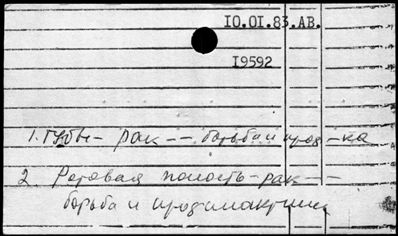 10.01.83.АВ.
19592
1. Губы - рак -- борьба и проф-ка
2. Ротовая полость - рак --
борьба и профилактика